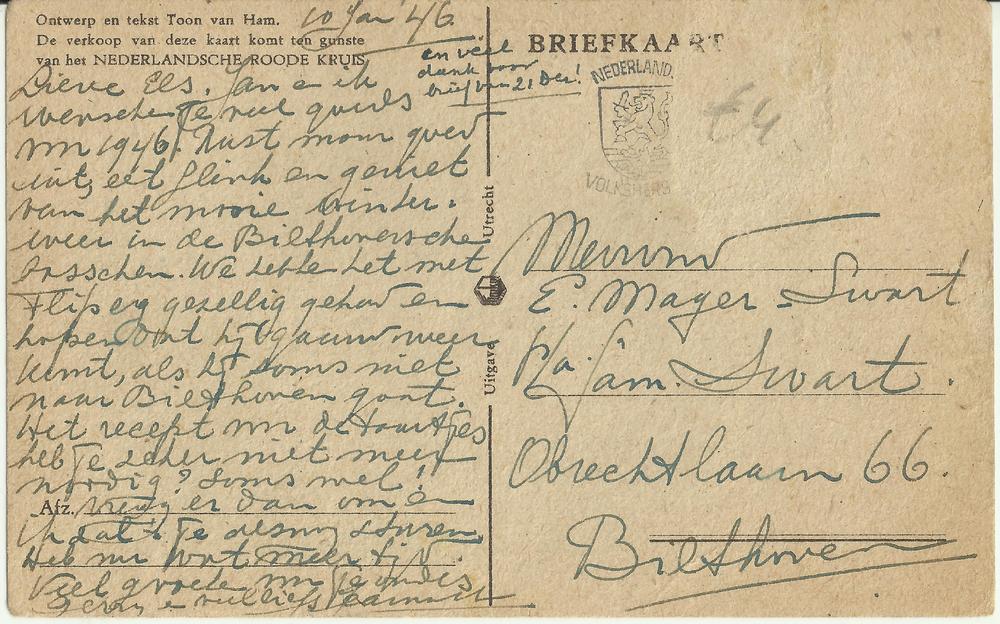 Ontwerp en tekst Toon van Ham.
De verkoop van deze kaart komt ten gunste
van het NEDERLANDSCHE ROODE KRUIS
10 Jan '46.
en veel
dank voor
brief van 21 Dec!
Lieve Els. Jan en ik
wenschen je veel goeds
in 1946. Rust maar goed
uit, eet flink en geniet
van het mooie winter-
weer in de Bilthovensche
bosschen. We hebben het met
Flip erg gezellig gehad en
hopen dat hij gauw weer
komt, als hij soms niet
naar Bilthoven gaat.
Het recept van de taartjes
heb je zeker niet meer
noodig? Soms wel!
Afz. Vraag er dan om en
ik zal 't je alsnog sturen
Heb nu wat meer tijd.
Veel groeten
en veel liefs
Uitgave Utrecht
BRIEFKAART
NEDERLAND.
VOLKSHERS
£4
Mevrouw
E. Mager-Swart
p/a fam. Swart.
Obrechtlaan 66.
Bilthoven